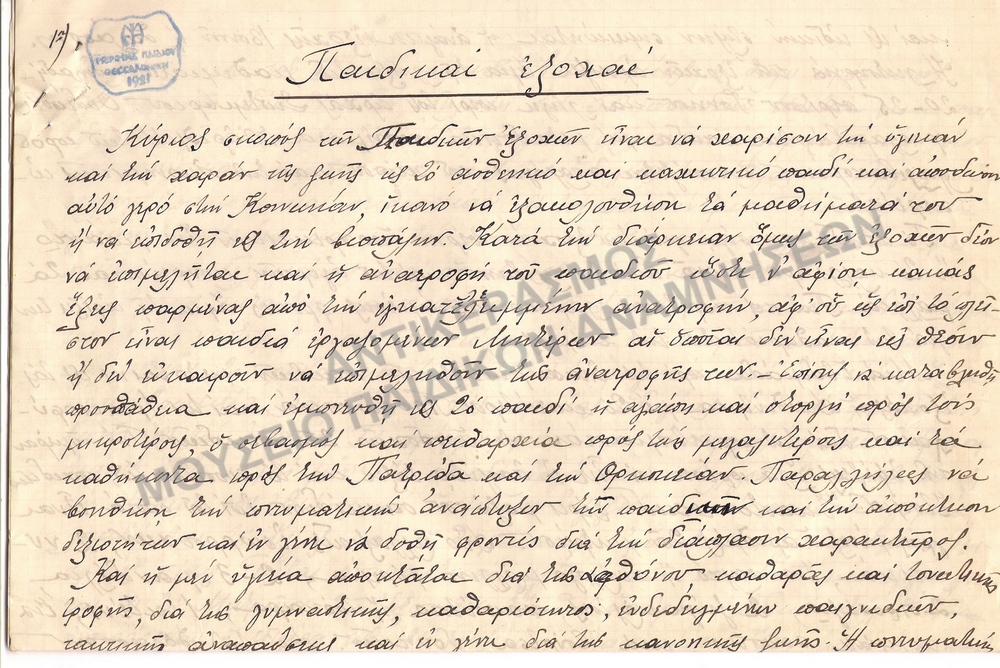 1η)
ΘΕΣΣΑΛΟΝΙΚΗ
1921
Παιδικαί ἐξοχαί
Κύριος σκοπός τῶν Παιδικῶν Ἐξοχῶν εἶναι νά χαρίσουν τήν ὑγείαν
καί τήν χαράν τῆς ζωῆς εἰς τό ἀσθενικό καί καχεκτικό παιδί καί ἀποδώσουν
αὐτό γερό στήν Κοινωνίαν, ἱκανό νά ἐξακολουθήση τά μαθήματά του
ἤ νά ἐπιδοθῆ εἰς τήν βιοπάλην. Κατά τήν διάρκειαν ὅμως τῶν ἐξοχῶν δέον
νά ἐπιμελήται καί ἡ ἀνατροφή τοῦ παιδιοῦ ὥστε ν' ἀφίση κακάς
ἕξεις παρμένας ἀπό τήν ἐγκατελελειμμένην ἀνατροφήν, ἀφ' οὗ ὡς ἐπί τό πλεῖ-
στον εἶναι παιδιά ἐργαζομένων Μητέρων αἱ ὁποῖαι δέν εἶναι εἰς θέσιν
ἤ δέν εὐκαιροῦν νά ἐπιμεληθοῦν τῆς ἀνατροφῆς των.- Ἐπίσης νά καταβληθῆ
προσπάθεια καί ἐμπνευσθῆ εἰς τό παιδί ἡ ἀγάπη καί στοργή πρός τούς
μικροτέρους, ὁ σεβασμός καί πειθαρχία πρός τούς μεγαλυτέρους καί τά
καθήκοντα πρός τήν Πατρίδα καί τήν Θρησκείαν. Παραλλήλως νά
βοηθήση τήν πνευματική ἀνάπτυξιν τῶν παιδιῶν καί τήν ἀπόκτησιν
δεξιοτήτων καί ἐν γένει νά δοθῆ φροντίς διά τήν διάπλασιν χαρακτῆρος.
Καί ἡ μέν ὑγεία ἀποκτᾶται διά τῆς ἀφθόνου, καθαρᾶς καί τονωτικῆς
τροφῆς, διά τῆς γυμναστικῆς, καθαριότητος, ἐνδεδειγμένων παιγνιδιῶν,
τακτικῆς ἀναπαύσεως καί ἐν γένει διά τῆς κανονικῆς ζωῆς. Ἡ πνευματική
ΑΝΤΙΚΕΡΑΣΜΟΣ
ΜΟΥΣΕΙΟ ΠΑΙΔΙΚΩΝ ΑΝΑΜΝΗΣΕΩΝ